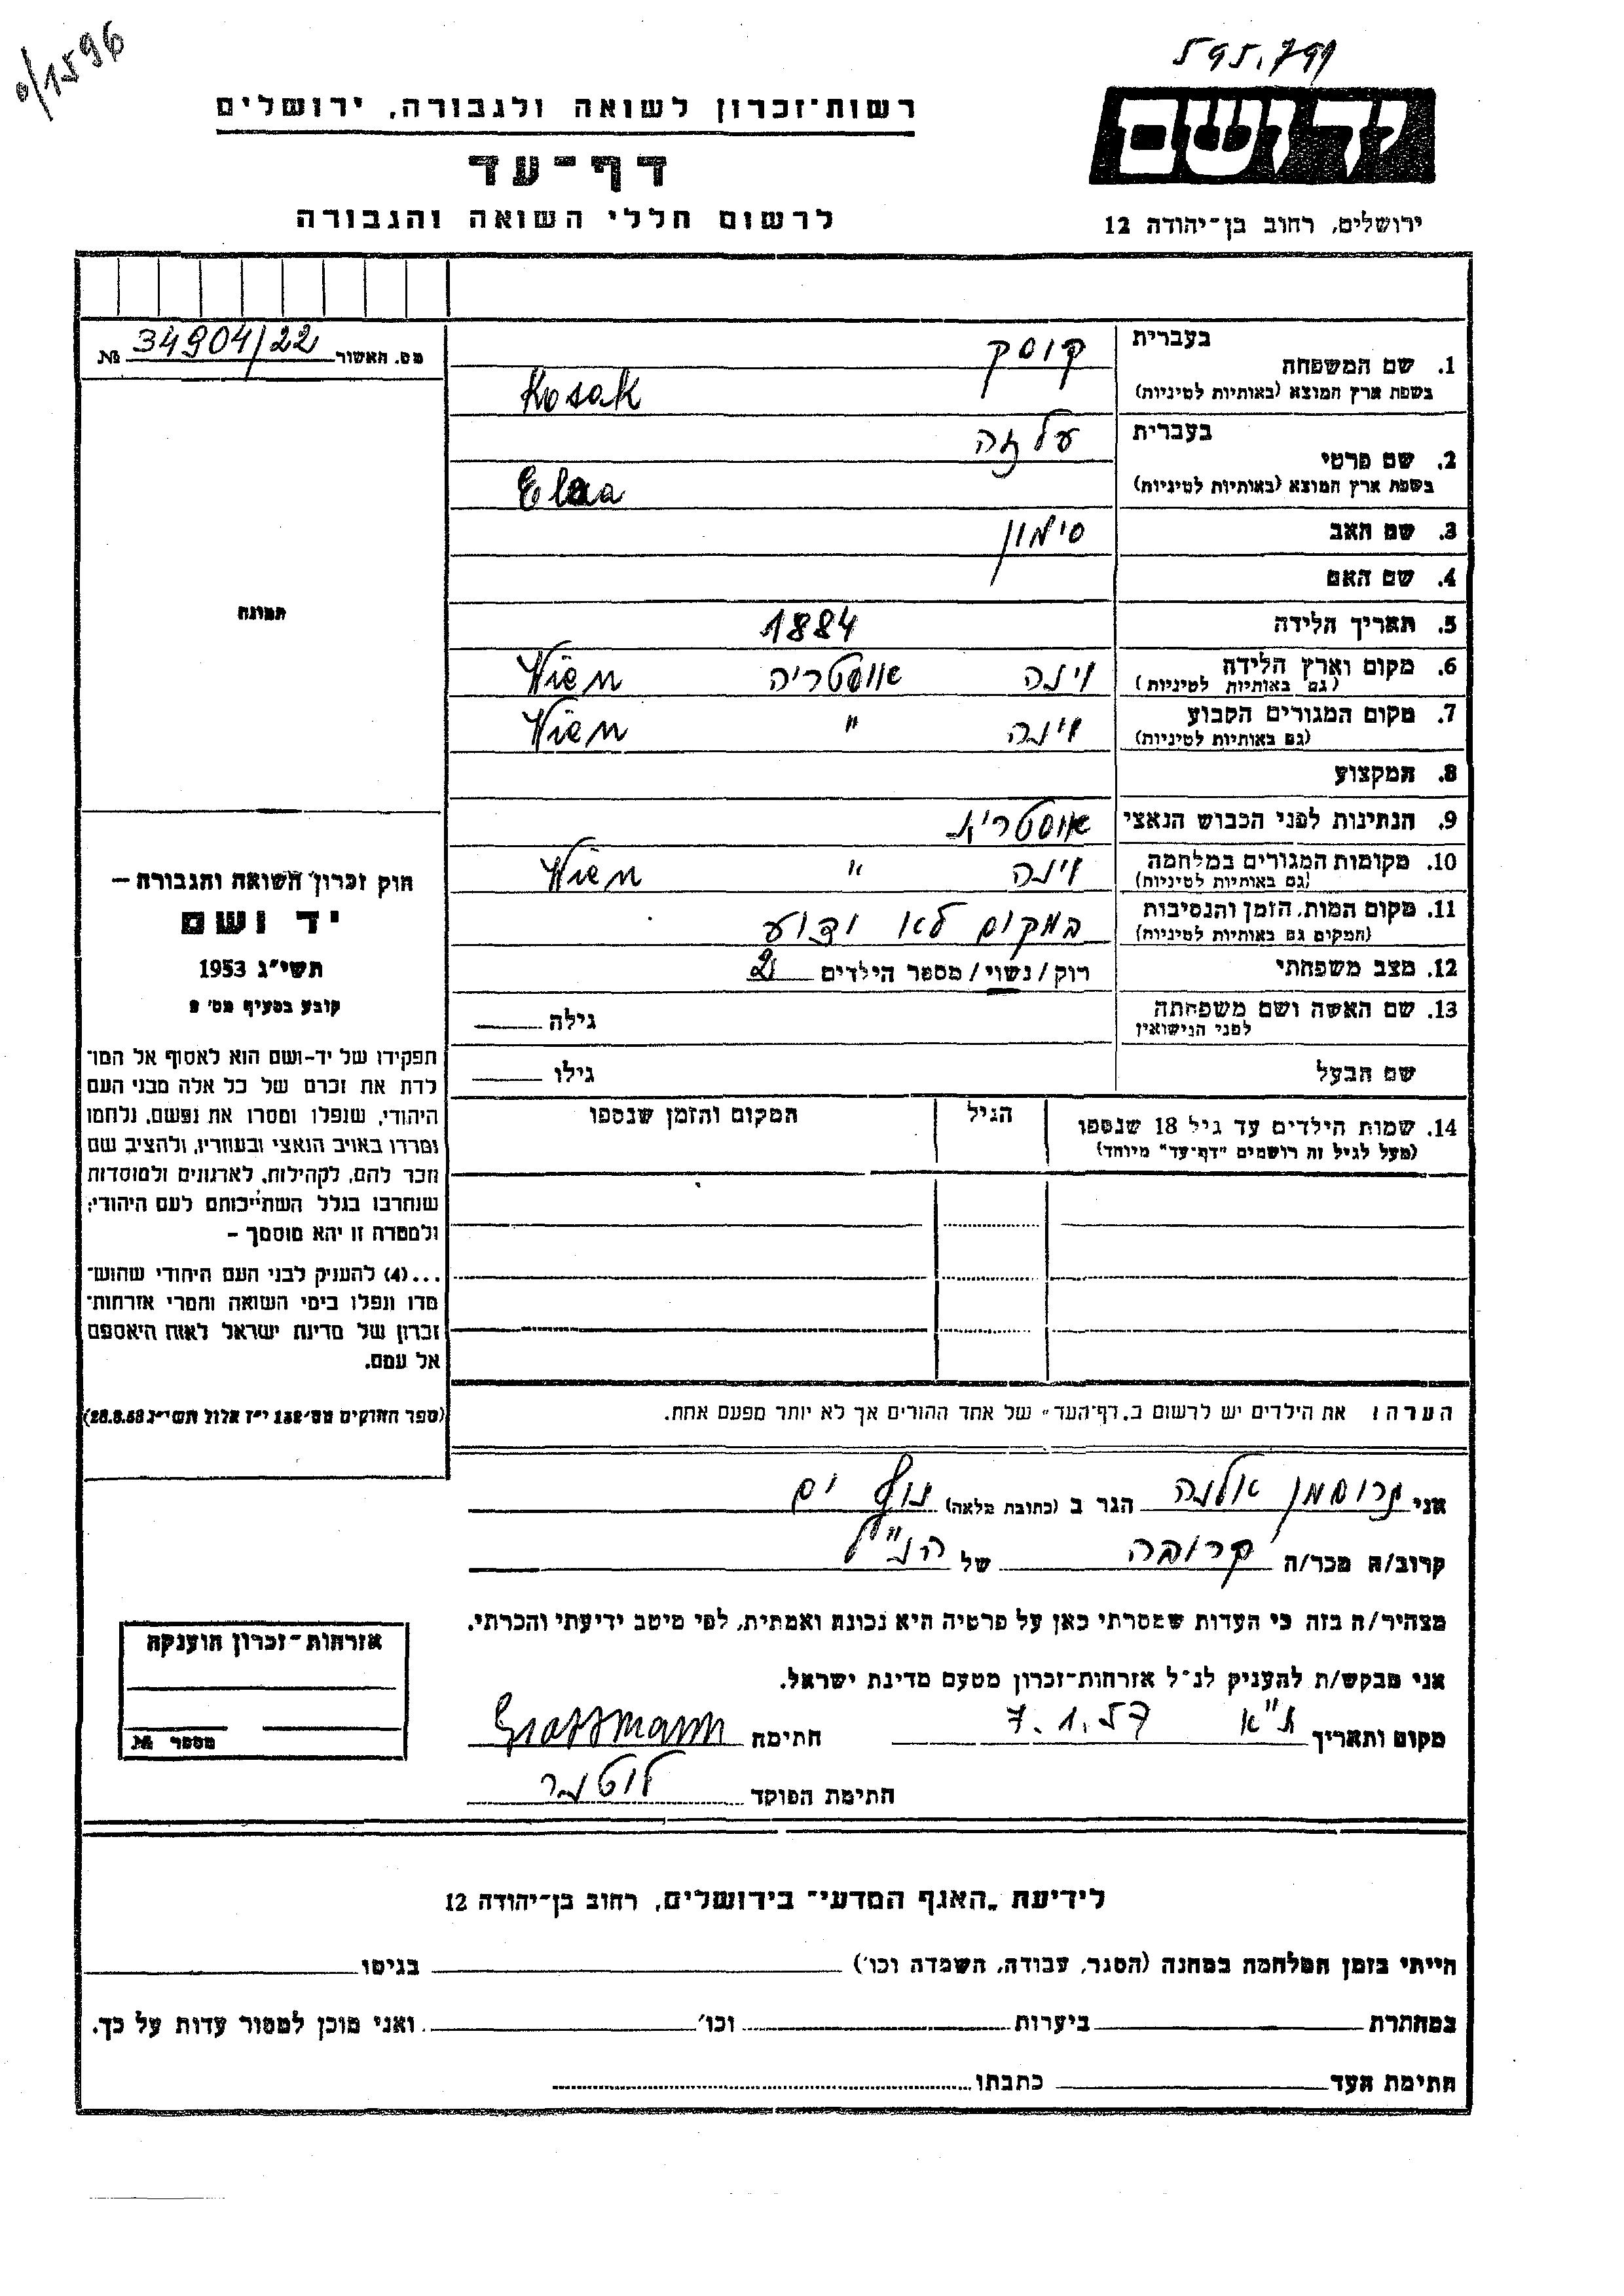 0/1596
595.791
יד ושם
ירושלים, רחוב בן-יהודה 12
רשות-זכרון לשואה ולגבורה, ירושלים
דף-עד
לרשום חללי השואה והגבורה
מס. האשור 34904/22 №
תמונה
חוק זכרון השואה והגבורה —
יד ושם
תשי״ג 1953
קובע בסעיף מס׳ 2
תפקידו של יד-ושם הוא לאסוף אל המו־
לדת את זכרם של כל אלה מבני העם
היהודי, שנפלו ומסרו את נפשם, נלחמו
ומרדו באויב הנאצי ובעוזריו, ולהציב שם
וזכר להם, לקהילות, לארגונים ולמוסדות
שנחרבו בגלל השתייכותם לעם היהודי;
ולמטרה זו יהא מוסמך —
...(4) להעניק לבני העם היהודי שהוש־
מדו ונפלו בימי השואה והמרי אזרחות־
זכרון של מדינת ישראל לאות היאספם
אל עמם.
(ספר החוקים מס׳ 132 י״ז אלול תשי״ג 28.8.53)
1. שם המשפחה בעברית קוסק
בשפת ארץ המוצא (באותיות לטיניות) Kosak
2. שם פרטי בעברית עלזה
בשפת ארץ המוצא (באותיות לטיניות)
3. שם האב סימון
4. שם האם
5. תאריך הלידה 1884
6. מקום וארץ הלידה (גם באותיות לטיניות) וינה אוסטריה Wien
7. מקום המגורים הקבוע (גם באותיות לטיניות) וינה " Wien
8. המקצוע
9. הנתינות לפני הכבוש הנאצי אוסטרית
10. מקומות המגורים במלחמה (גם באותיות לטיניות) וינה " Wien
11. מקום המות, הזמן והנסיבות (המקום גם באותיות לטיניות) במקום לא ידוע
12. מצב משפחתי רוק/נשוי/ מספר הילדים 2
13. שם האשה ושם משפחתה לפני הנישואין גילה
שם הבעל גילו
14. שמות הילדים עד גיל 18 שנספו הגיל המקום והזמן שנספו
(מעל לגיל זה רושמים ״דף-עד״ מיוחד)
הערה: את הילדים יש לרשום ב„דף-העד״ של אחד ההורים אך לא יותר מפעם אחת.
אני גרוסמן אלנה הגר ב (כתובת מלאה) נוף ים
קרוב/ה מכר/ה קרובה של הנ״ל
מצהיר/ה בזה כי העדות שמסרתי כאן על פרטיה היא נכונה ואמתית, לפי מיטב ידיעתי והכרתי.
אני מבקש/ת להעניק לנ״ל אזרחות-זכרון מטעם מדינת ישראל.
מקום ותאריך ת״א 7.1.57 חתימה Grossmann
חתימת הפוקד
אזרחות-זכרון הוענקה
מספר №
לידיעת „האגף המדעי״ בירושלים, רחוב בן-יהודה 12
הייתי בזמן המלחמה במחנה (הסגר, עבודה, השמדה וכו׳) בגיטו
במחתרת ביערות וכו׳ ואני מוכן למסור עדות על כך.
חתימת העד כתבתו